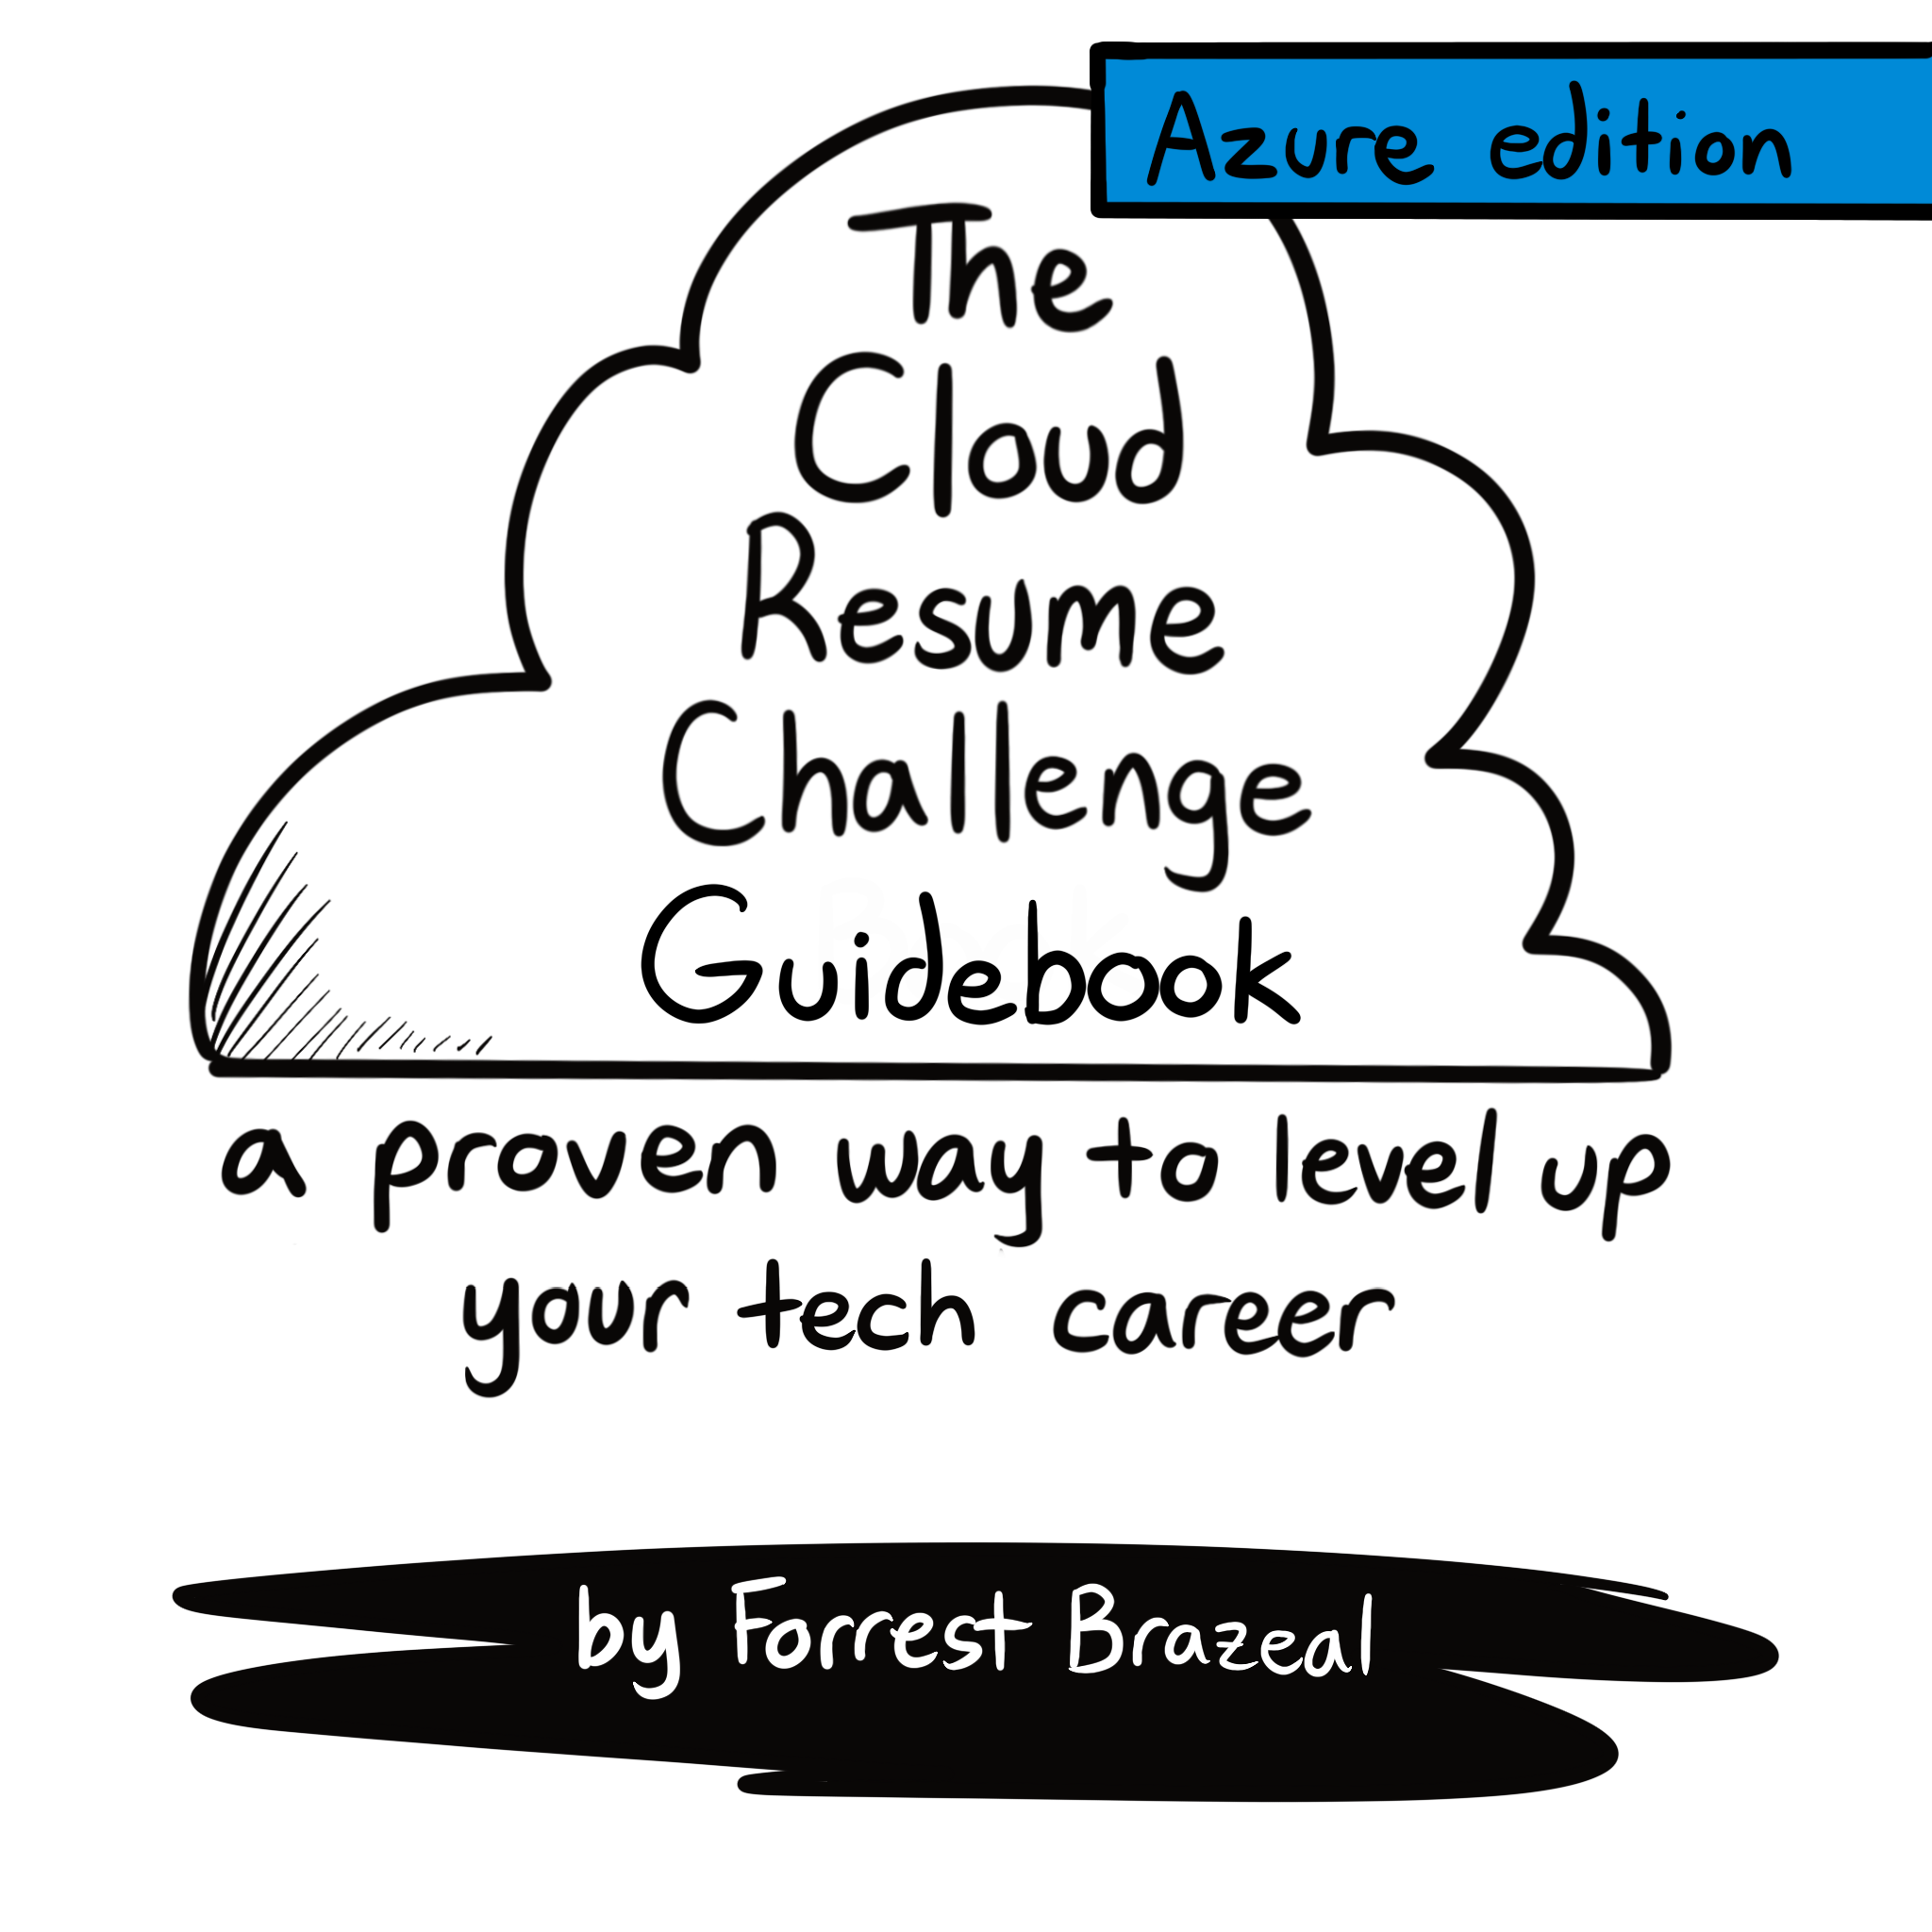 Azure edition
The
Cloud
Resume
Challenge
Guidebook
a proven way to level up
your tech career
by Forrest Brazeal